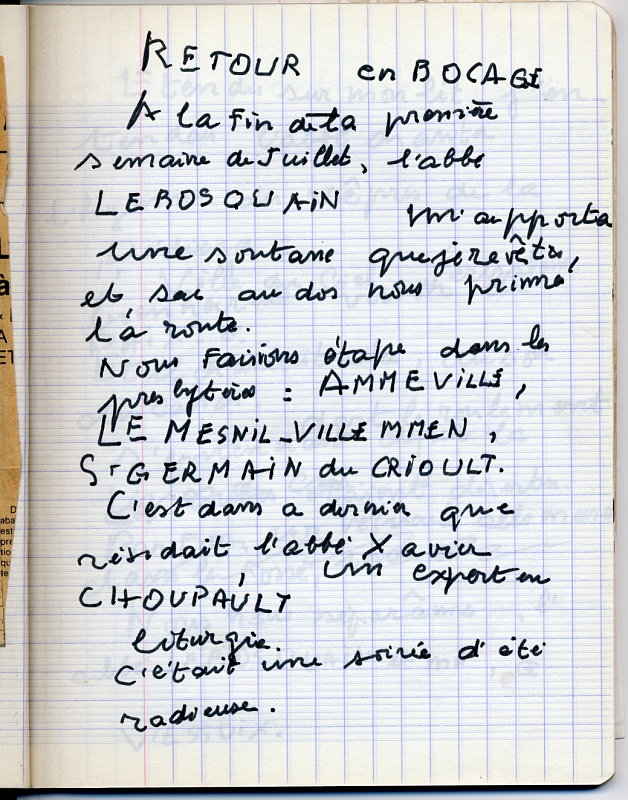 RETOUR en BOCAGE
A la Fin de la première
semaine de Juillet, l'abbé
LEBOSQUAIN m'apporta
une soutane que je revêtis,
et sac au dos nous primes
la route.
Nous Faisions étape dans les
presbytères : AMMEVILLE,
LE MESNIL-VILLEMMEN,
St GERMAIN du CRIOULT.
C'est dans a dernier que
résidait l'abbé Xavier
CHOUPAULT, un expert en
liturgie.
C'était une soirée d'été
radieuse.